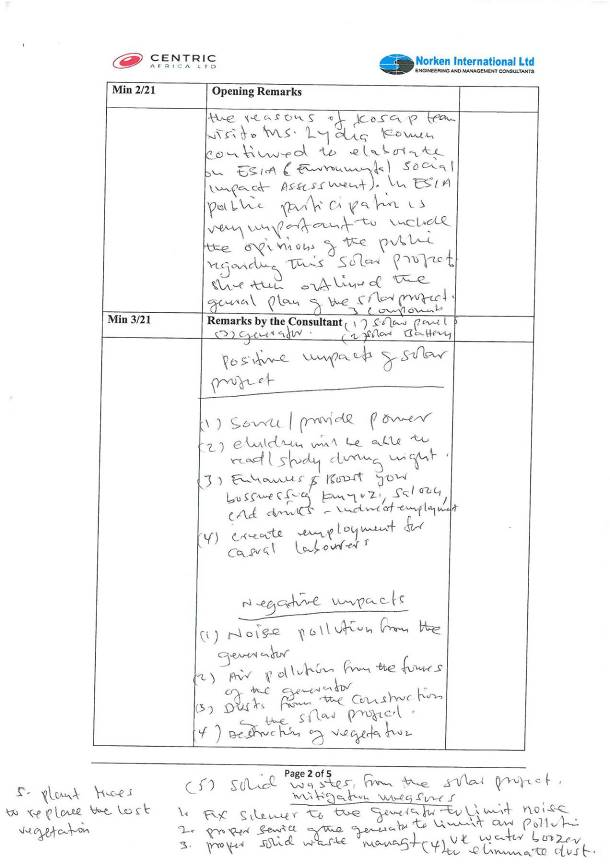 CENTRIC
AFRICA LTD
Norken International Ltd
ENGINEERING AND MANAGEMENT CONSULTANTS
Min 2/21
Opening Remarks
the reasons of Kosap team
visit. Ms. Lydia Komen
continued to elaborate
on ESIA (Environmental Social
Impact Assessment). In ESIA
public participation is
very important to include
the opinions of the public
regarding this solar project
she then outlined the
general plan of the solar project.
3 components
Min 3/21
Remarks by the Consultant (1) Solar panel
(3) generator. (2) Solar Battery
Positive impacts of solar
project
(1) Source/provide power
(2) children will be able to
read/study during night.
(3) Enhances & Boost your
Salon,
cold drinks - indirect employment
(4) create employment for
casual labourers
Negative impacts
(1) Noise pollution from the
generator
(2) Air pollution from the fumes
of the generator
(3) Dusts from the construction
of the solar project.
(4) Destruction of vegetation
Page 2 of 5
(5) solid wastes, from the solar project.
mitigation measures
1. Fix silencer to the generator to limit noise
2. proper service of the generator to limit air polluti
3. proper solid waste managt (4) use water boozer
to eliminate dust.
5- plant trees
to replace the lost
vegetation